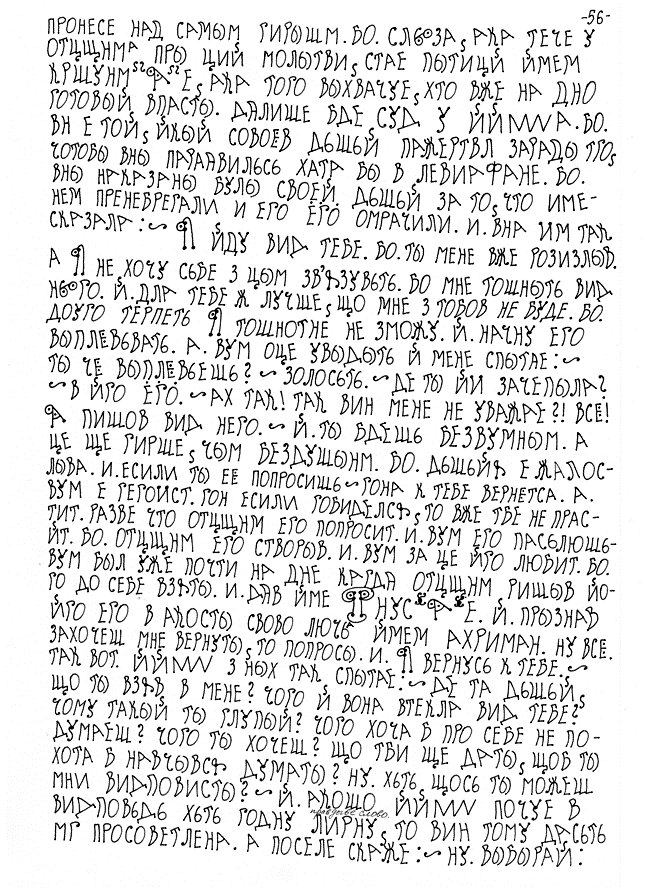 -56-
ПРОНЕСЕ НАД САМЫМ ГИРЫШМ. БО. СЛЮЗА, АКА ТЕЧЕ У
ПРЫ ЦИЙ МОЛЫТВИ, СТАЕ ПЫТИЦИЙ ЙМЕМ
АКА ТОГО ВЫХВАЧУЕ, ХТО ВЖЕ НА ДНО
ГОТОВЫЙ ВПАСТЫ. ДАЛИЩЕ БДЕ СУД У БО.
ВН Е ТОЙ, ЙКЫЙ СОВОЕВ ДЫШЫЙ ПАЖЕРТВЛ ЗАРАДЫ ТГО,
ЧОТОБЫ ВНЫ ПАТААВИЛЬСЬ ХАТА БЫ В ЛЕВИАФАНЕ. БО.
ВНЫ НАКАЗАНЫ БУЛЫ СВОЕЙ ДЫШЫЙ ЗА ТО, ЧТО ИМЕ-
НЕМ ПРЕНЕБРЕГАЛИ И ЕГО ЕГО ОМРАЧИЛИ. И. ВНА ИМ ТАК
СКАЗАЛА:~ Я ЙДУ ВИД ТЕБЕ. БО. ТЫ МЕНЕ ВЖЕ РОЗИЗЛЫВ.
А Я НЕ ХОЧУ СЬБЕ З ЦЫМ ЗВЯЗУВЬТЬ. БО МНЕ ТОШНЫТЬ ВИД
НЬОГО. Й. ДЛА ТЕБЕ Ж ЛУЧШЕ, ЩО МНЕ З ТОБОВ НЕ БУДЕ. БО.
ДОУГО ТЕРПЕТЬ Я ТОШНОТНЕ НЕ ЗМОЖУ. Й. НАЧНУ ЕГО
ВЫПЛЕВЬВАТЬ. А. ВУМ ОЦЕ УВЫДЫТЬ Й МЕНЕ СПЫТАЕ:~
ТЫ ЧЕ ВЫПЛЕВЬЕШЬ? ~ ЗОЛОСЬТЬ. ~ ДЕ ТЫ ЙИ ЗАЧЕПЫЛА?
~ В ЙГО ЕГО. ~ АХ ТАК! ТАК ВИН МЕНЕ НЕ УВАЖАЕ?! ВСЕ!
Я ПИШОВ ВИД НЕГО. ~ Й. ТЫ БДЕШЬ БЕЗВУМНЫМ. А
ЦЕ ЩЕ ГИРШЕ, ЧЫМ БЕЗДУШЫНМ. БО. ДЫШЫЙЯ Е ЖАЛОС-
ЛЫВА. И. ЕСИЛИ ТЫ ЕЕ ПОПРОСИШЬ ~ ГОНА К ТЕБЕ ВЕРНЕТСА. А.
ВУМ Е ГЕРОИСТ. ГОН ЕСИЛИ ГОБИДЕЛСЯ, ТО ВЖЕ ТБЕ НЕ ПРАС-
ТИТ. РАЗВЕ ЧТО ОТЦЩНМ ЕГО ПОПРОСИТ. И. ВУМ ЕГО ПАСЬЛЮШЬ-
ЙТ. БО. ОТЦЩНМ ЕГО СТВОРЫВ. И. ВУМ ЗА ЦЕ ЙГО ЛЮБИТ. БО.
ВУМ БЫЛ УЖЕ ПОЧТИ НА ДНЕ КАГДА ОТЦЩНМ РИШЫВ ЙО-
ГО ДО СЕБЕ ВЗЯТЫ. И. ДАВ ЙМЕ Й. ПРЫЗНАВ
ЙГО ЕГО В АКОСТЫ СВОВО ЛЮЧЬ ЙМЕМ АХРИМАН. НУ ВСЕ.
ЗАХОЧЕШ МНЕ ВЕРНУТЫ, ТО ПОПРОСЫ. И. Я ВЕРНУСЬ К ТЕБЕ. ~
ТАК ВОТ. З НЫХ ТАК СПЫТАЕ:~ ДЕ ТА ДЫШЫЙ,
ЩО ТЫ ВЗЯВ В МЕНЕ? ЧОГО Й ВОНА ВТЕКЛА ВИД ТЕБЕ?
ЧОМУ ТАКЫЙ ТЫ ГЛУПЫЙ? ЧОГО ХОЧА Б ПРО СЕБЕ НЕ ПО-
ДУМАЕШ? ЧОГО ТЫ ХОЧЕШ? ЩО ТБИ ЩЕ ДАТЫ, ЩОБ ТЫ
ХОТА Б НАВЧЫВСЯ ДУМАТЫ? НУ. ХЬТЬ ЩОСЬ ТЫ МОЖЕШ
МНИ ВИДПОВИСТЫ? ~ Й. АКОЩО ПОЧУЕ В
ВИДПОВЬДЬ ХЬТЬ ГОДНУ ЛИРНУ, ТО ВИН ТОМУ ДАСЬТЬ
МГ ПРОСОВЕТЛЕНА. А ПОСЕЛЕ СКАЖЕ:~ НУ. ВЫБЫРАЙ: